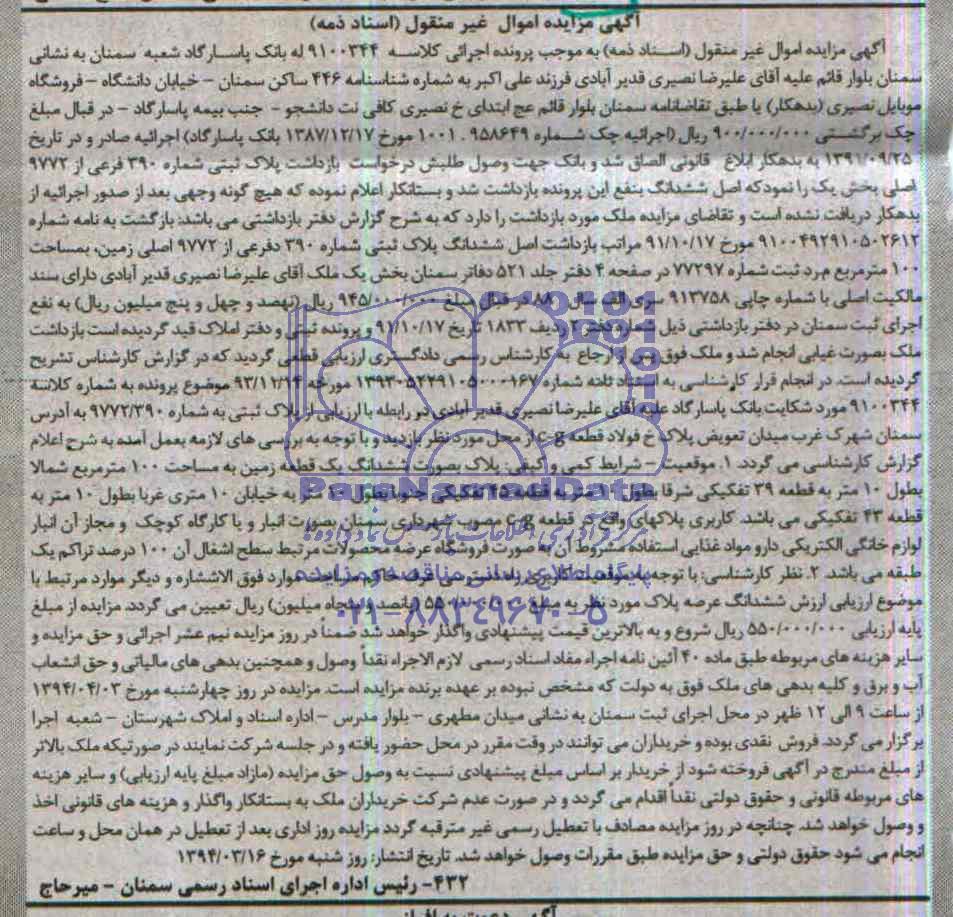 آگهی مزایده اموال غیر منقول (اسناد ذمه)
آگهی مزایده اموال غیر منقول (اسناد ذمه) به موجب پرونده اجرائی کلاسه ۹۱۰۰۳۴۴ له بانک پاسارگاد شعبه سمنان به نشانی
سمنان بلوار قائم علیه آقای علیرضا نصیری قدیر آبادی فرزند علی اکبر به شماره شناسنامه ۴۴۶ ساکن سمنان - خیابان دانشگاه - فروشگاه
موبایل نصیری (بدهکار) یا طبق تقاضانامه سمنان بلوار قائم عج ابتدای خ نصیری کافی نت دانشجو - جنب بیمه پاسارگاد - در قبال مبلغ
چک برگشتی ۹۰۰/۰۰۰/۰۰۰ ریال (اجرائیه چک شماره ۹۵۸۶۴۹ ، ۱۰۰۱ مورخ ۱۳۸۷/۱۲/۱۷ بانک پاسارگاد) اجرائیه صادر و در تاریخ
۱۳۹۱/۰۹/۲۵ به بدهکار ابلاغ قانونی الصاق شد و بانک جهت وصول طلبش درخواست بازداشت پلاک ثبتی شماره ۳۹۰ فرعی از ۹۷۷۲
اصلی بخش یک را نمود که اصل ششدانگ بنفع این پرونده بازداشت شد و بستانکار اعلام نموده که هیچ گونه وجهی بعد از صدور اجرائیه از
بدهکار دریافت نشده است و تقاضای مزایده ملک مورد بازداشت را دارد که به شرح گزارش دفتر بازداشتی می باشد: بازگشت به نامه شماره
۹۱۰۰۴۹۲۹۱۰۵۰۲۶۱۲ مورخ ۹۱/۱۰/۱۷ مراتب بازداشت اصل ششدانگ پلاک ثبتی شماره ۳۹۰ دفرعی از ۹۷۷۲ اصلی زمین، بمساحت
۱۰۰ مترمربع م.رد ثبت شماره ۷۷۲۹۷ در صفحه ۴ دفتر جلد ۵۲۱ دفاتر سمنان بخش یک ملک آقای علیرضا نصیری قدیر آبادی دارای سند
مالکیت اصلی با شماره چاپی ۹۱۳۷۵۸ سری الف سال ۸۸ در قبال مبلغ ۹۴۵/۰۰۰/۰۰۰ ریال (نهصد و چهل و پنج میلیون ریال) به نفع
اجرای ثبت سمنان در دفتر بازداشتی ذیل شماره دفتر ۲ ردیف ۱۸۳۳ تاریخ ۹۱/۱۰/۱۷ و پرونده ثبتی و دفتر املاک قید گردیده است بازداشت
ملک بصورت غیابی انجام شد و ملک فوق پس از ارجاع به کارشناس رسمی دادگستری ارزیابی قطعی گردید که در گزارش کارشناس تشریح
گردیده است. در انجام قرار کارشناسی به استناد نامه شماره ۱۳۹۳۰۵۲۲۹۱۰۵۰۰۰۱۶۷ مورخه ۹۳/۱۲/۱۴ موضوع پرونده به شماره کلاسه
۹۱۰۰۳۴۴ مورد شکایت بانک پاسارگاد علیه آقای علیرضا نصیری قدیر آبادی در رابطه با ارزیابی از پلاک ثبتی به شماره ۹۷۷۲/۳۹۰ به آدرس
سمنان شهرک غرب میدان تعویض پلاک خ فولاد قطعه c-g از محل مورد نظر بازدید و با توجه به بررسی های لازمه بعمل آمده به شرح اعلام
گزارش کارشناسی می گردد. ۱. موقعیت - شرایط کمی و کیفی: پلاک بصورت ششدانگ یک قطعه زمین به مساحت ۱۰۰ مترمربع شمالا
بطول ۱۰ متر به قطعه ۳۹ تفکیکی شرقا بطول ۱۰ متر به قطعه ۴۵ تفکیکی جنوبا بطول ۱۰ متر به خیابان ۱۰ متری غربا بطول ۱۰ متر به
قطعه ۴۳ تفکیکی می باشد. کاربری پلاکهای واقع در قطعه c-g مصوب شهرداری سمنان بصورت انبار و یا کارگاه کوچک و مجاز آن انبار
لوازم خانگی الکتریکی دارو مواد غذایی استفاده مشروط آن به صورت فروشگاه عرضه محصولات مرتبط سطح اشغال آن ۱۰۰ درصد تراکم یک
طبقه می باشد. ۲. نظر کارشناسی: با توجه به موقعیت کاربری مساحت موارد فوق الاشاره و دیگر موارد مرتبط با
موضوع ارزیابی ارزش ششدانگ عرصه پلاک مورد نظر به مبلغ (پانصد و پنجاه میلیون) ریال تعیین می گردد. مزایده از مبلغ
پایه ارزیابی ۵۵۰/۰۰۰/۰۰۰ ریال شروع و به بالاترین قیمت پیشنهادی واگذار خواهد شد ضمناً در روز مزایده نیم عشر اجرائی و حق مزایده و
سایر هزینه های مربوطه طبق ماده ۴۰ آئین نامه اجراء مفاد اسناد رسمی لازم الاجراء نقداً وصول و همچنین بدهی های مالیاتی و حق انشعاب
آب و برق و کلیه بدهی های ملک فوق به دولت که مشخص نبوده بر عهده برنده مزایده است. مزایده در روز چهارشنبه مورخ ۱۳۹۴/۰۴/۰۳
از ساعت ۹ الی ۱۲ ظهر در محل اجرای ثبت سمنان به نشانی میدان مطهری - بلوار مدرس - اداره اسناد و املاک شهرستان - شعبه اجرا
برگزار می گردد. فروش نقدی بوده و خریداران می توانند در وقت مقرر در محل حضور یافته و در جلسه شرکت نمایند در صورتیکه ملک بالاتر
از مبلغ مندرج در آگهی فروخته شود از خریدار بر اساس مبلغ پیشنهادی نسبت به وصول حق مزایده (مازاد مبلغ پایه ارزیابی) و سایر هزینه
های مربوطه قانونی و حقوق دولتی نقداً اقدام می گردد و در صورت عدم شرکت خریداران ملک به بستانکار واگذار و هزینه های قانونی اخذ
و وصول خواهد شد. چنانچه در روز مزایده مصادف با تعطیل رسمی غیر مترقبه گردد مزایده روز اداری بعد از تعطیل در همان محل و ساعت
انجام می شود حقوق دولتی و حق مزایده طبق مقررات وصول خواهد شد. تاریخ انتشار: روز شنبه مورخ ۱۳۹۴/۰۳/۱۶
۴۳۲- رئیس اداره اجرای اسناد رسمی سمنان - میرحاج
ParsNamadData
۰۲۱-۸۸۳۴۹۶۷۰-۵